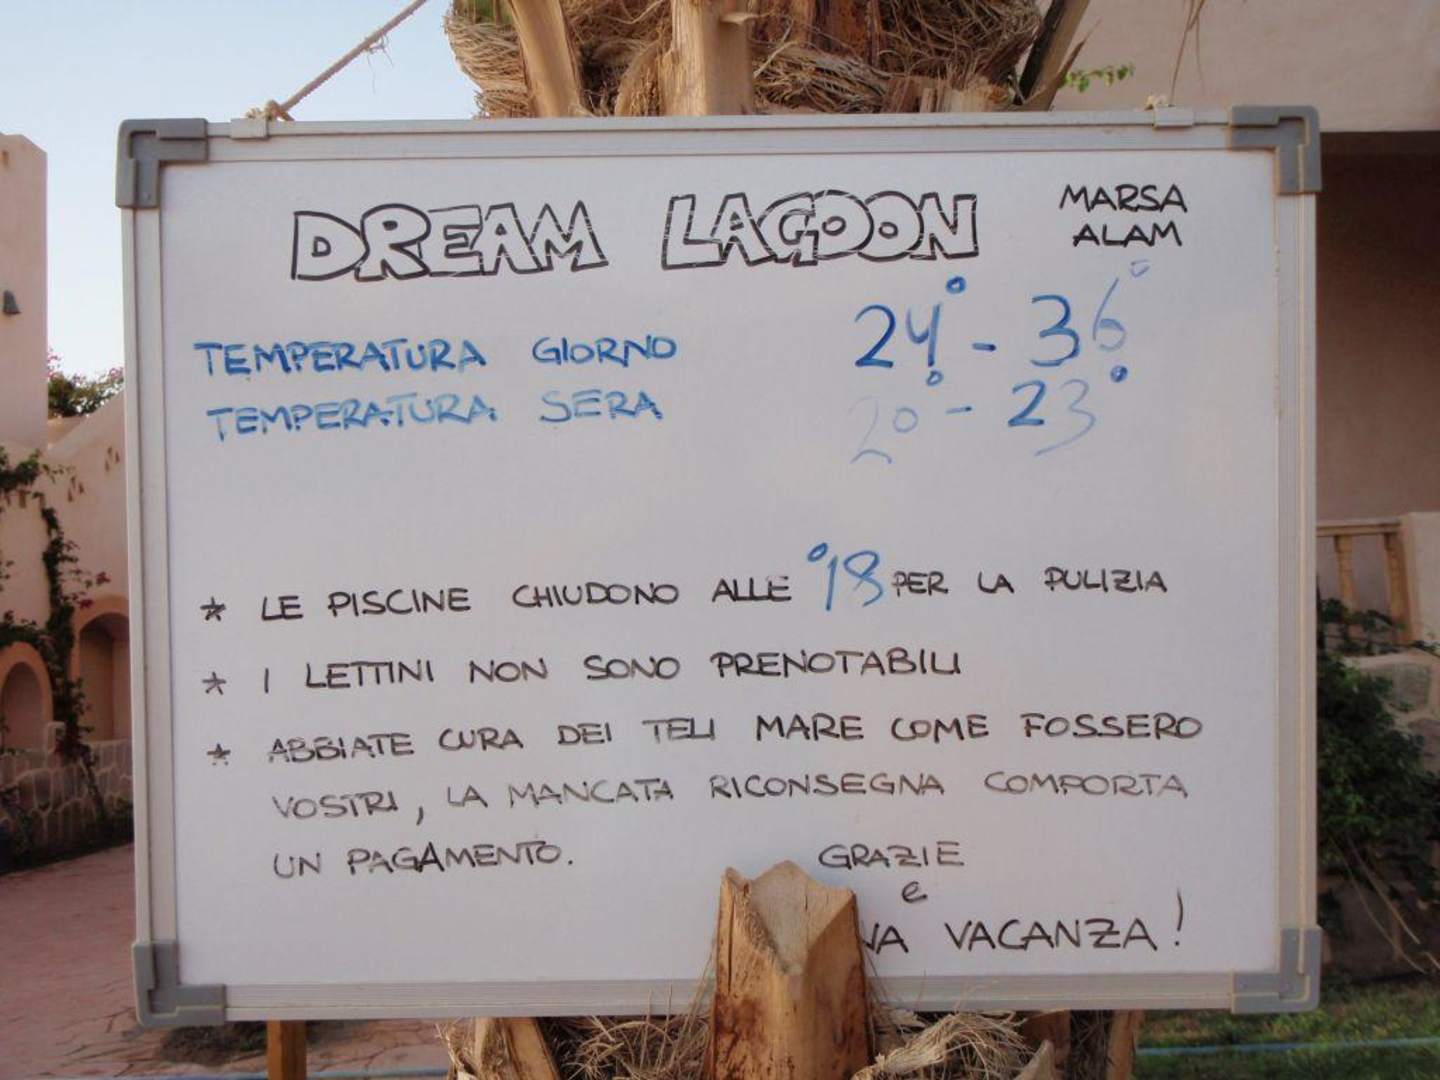 DREAM LAGOON MARSA ALAM
TEMPERATURA GIORNO 24° - 36°
TEMPERATURA SERA 20° - 23°
* LE PISCINE CHIUDONO ALLE °18 PER LA PULIZIA
* I LETTINI NON SONO PRENOTABILI
* ABBIATE CURA DEI TELI MARE COME FOSSERO
VOSTRI, LA MANCATA RICONSEGNA COMPORTA
UN PAGAMENTO.
GRAZIE
e
VACANZA!